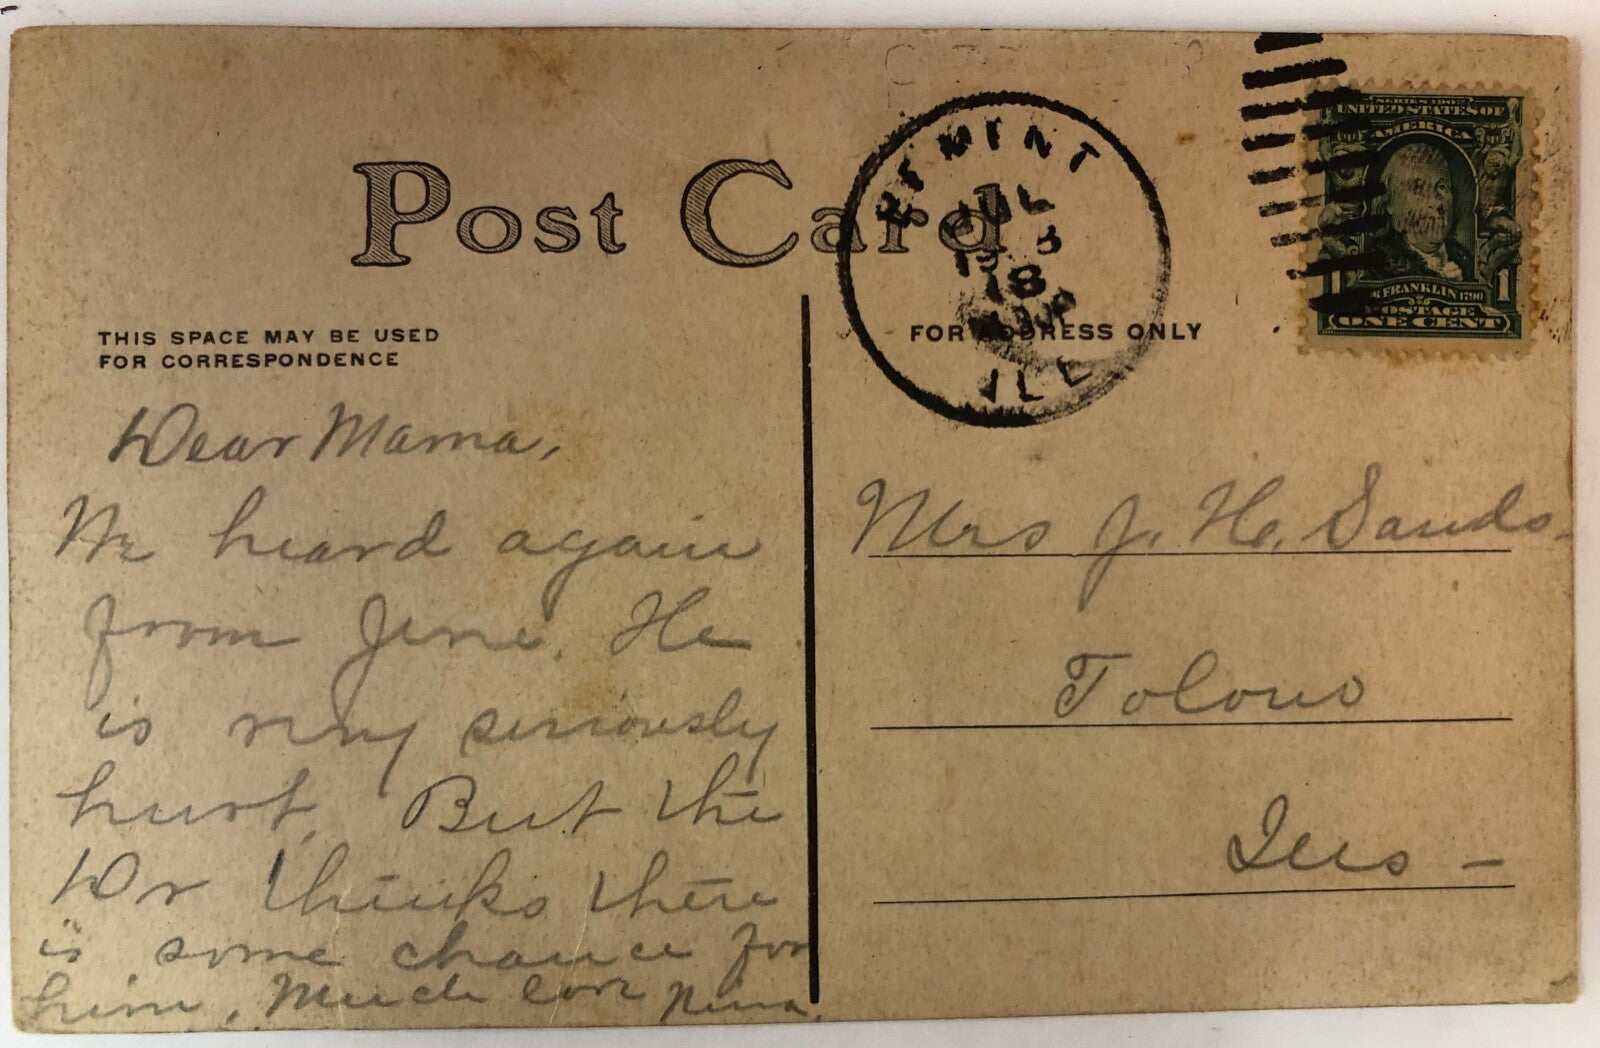 Post Card
THIS SPACE MAY BE USED
FOR CORRESPONDENCE
Dear Mama,
We heard again
from Jene. He
is very seriously
hurt. But the
Dr thinks there
is some chance for
him. Much love Nina.
JUL
3
18
ILL
SERIES 1902
UNITED STATES OF
AMERICA
FRANKLIN 1790
1
POSTAGE
ONE CENT
FOR ADDRESS ONLY
Mrs J. H. Sands.
Tolono
Ills -